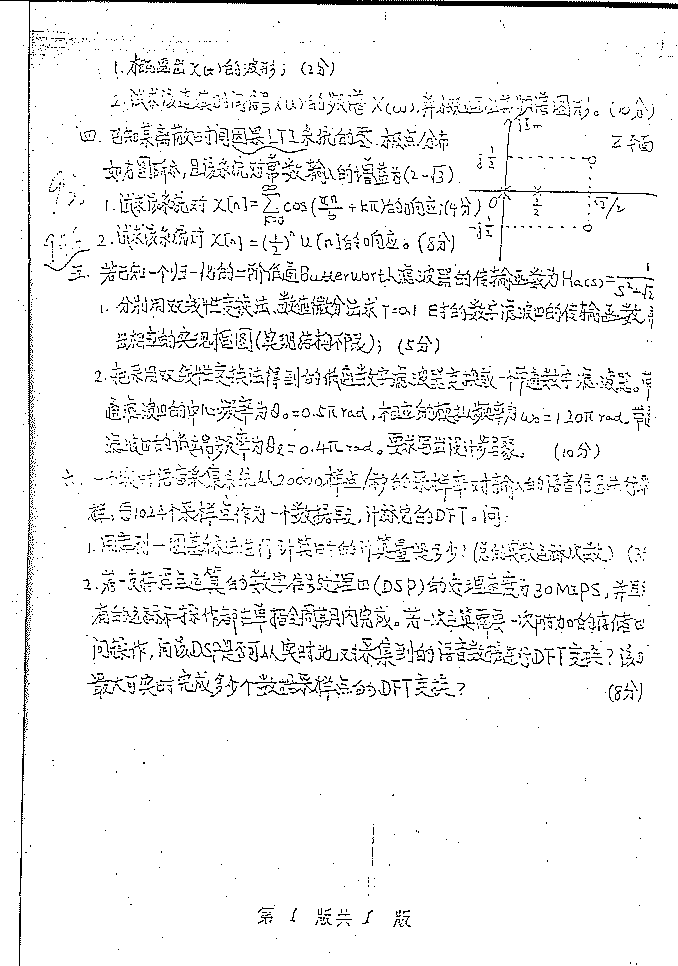 1. 概画出X(t)的波形; (2分)
2. 试求该连续时间信号X(t)的频谱X(ω), 并概画出其频谱图形。(10分)
四. 已知某离散时间因果LTI系统的零.极点分布
如右图所示, 且该系统对常数输入的增益为(2-√3)
1. 试求该系统对 X[n]=∑cos(πn/3+kπ)的响应;(4分)
2. 试求该系统对 X[n]=(1/2)ⁿ u[n]的响应。(8分)
jIm
Z平面
j1/2
0
1/2
√3/2
-j1/2
五. 若已知一个归一化的二阶低通Butterworth滤波器的传输函数为Ha(s)=1/s²-√2
1. 分别用双线性变换法、数值微分法求T=0.1时的数字滤波口的传输函数,
出相应的实现框图(实现结构不限); (5分)
2. 把采用双线性变换法得到的低通数字滤波器变换成一个带通数字滤波器。带
通滤波口的中心频率为θ₀=0.5π rad, 相应的模拟频率为ω₀=120π rad。带通
滤波口的低端频率为θℓ=0.4π rad。要求写出设计步骤。 (10分)
六. 一个实时语音采集系统从20000样点/秒的采样率对输入的语音信号进行采
样, 每1024个采样点作为一个数据段, 计算它的DFT。问:
1. 用基列一图基算法进行计算时的计算量是多少? (总的实数运算次数)
2. 若一支持定点运算的数字信号处理口(DSP)的处理速度为30MIPS, 并且
有的运算和操作都在单指令周期内完成。若一次运算需要一次附加的存储口
问操作, 问该DSP是否可以实时地对采集到的语音数据进行DFT变换? 该
最大可实时完成多少个数据采样点的DFT变换? (8分)
第 1 版共 1 版